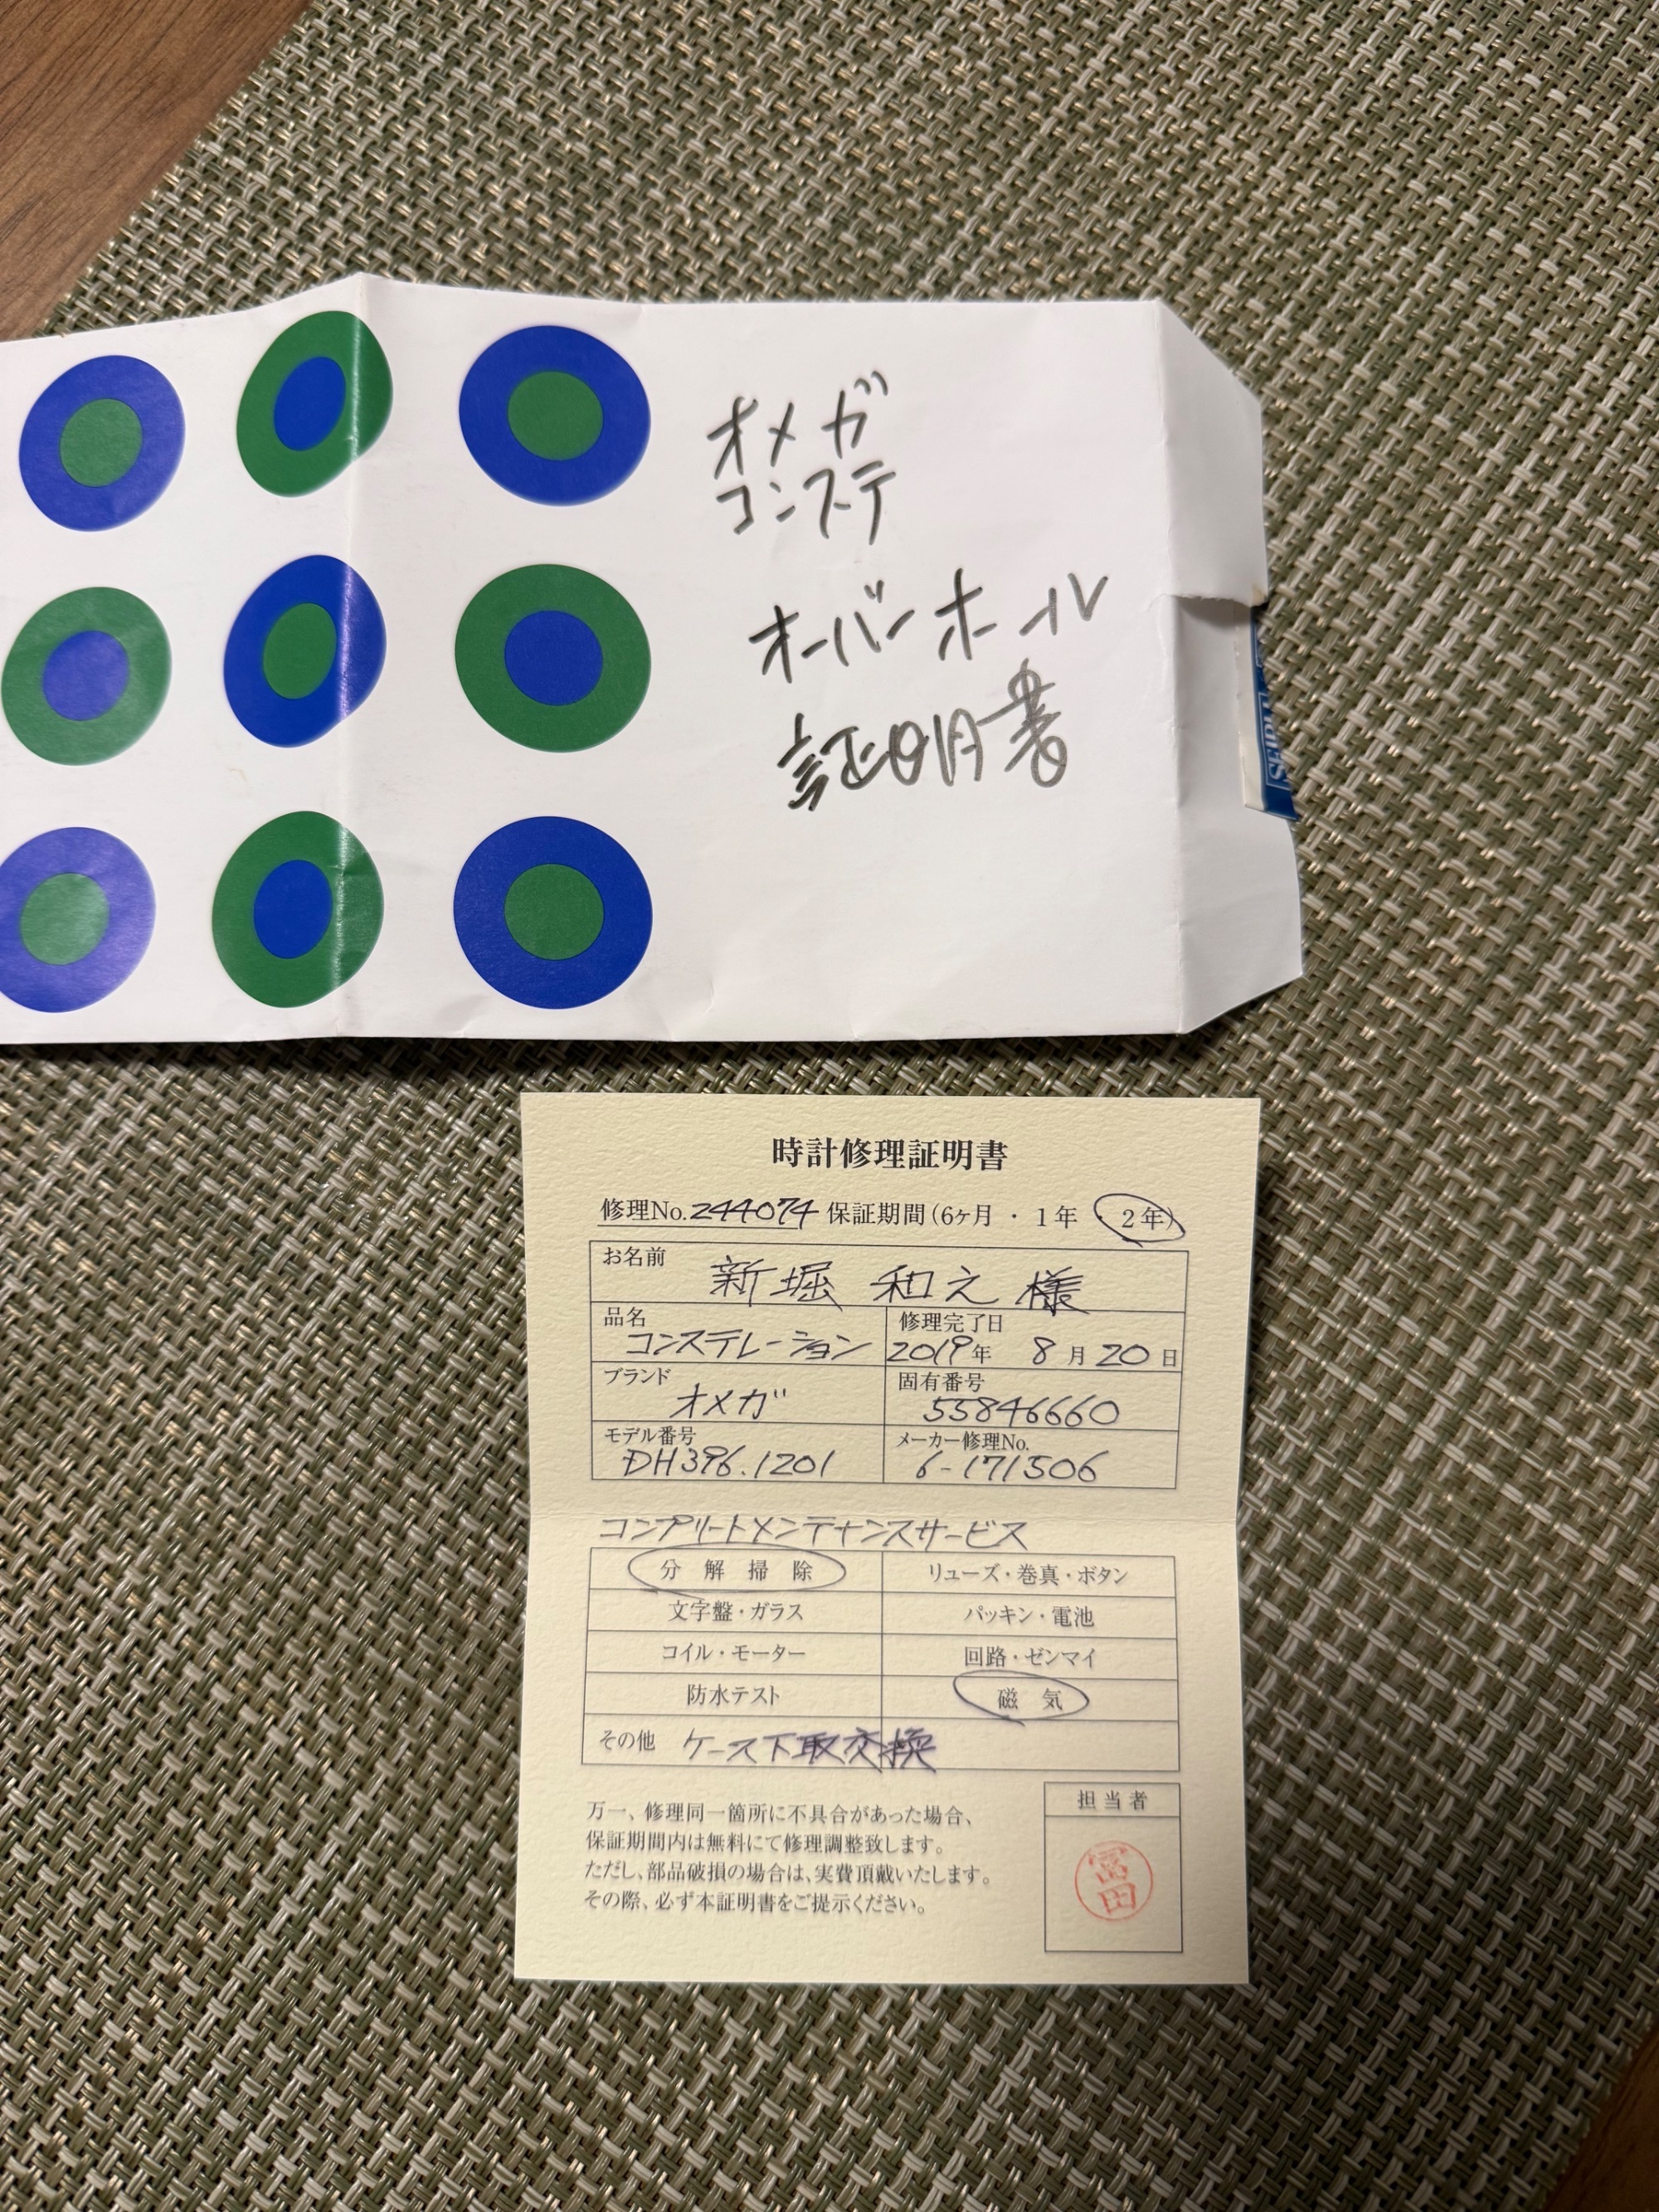 オメガ
コンステ
オーバーホール
証明書
SEIBU
時計修理証明書
修理No. 244074 保証期間(6ヶ月・1年 2年)
お名前 新堀 和え 様
品名 コンステレーション 修理完了日 2019年 8月20日
ブランド オメガ 固有番号 55846660
モデル番号 DH396.1201 メーカー修理No. 6-171506
コンプリートメンテナンスサービス
分解掃除 リューズ・巻真・ボタン
文字盤・ガラス パッキン・電池
コイル・モーター 回路・ゼンマイ
防水テスト 磁気
その他 ケース下取交換
万一、修理同一箇所に不具合があった場合、
保証期間内は無料にて修理調整致します。
ただし、部品破損の場合は、実費頂戴いたします。
その際、必ず本証明書をご提示ください。
担当者
冨田